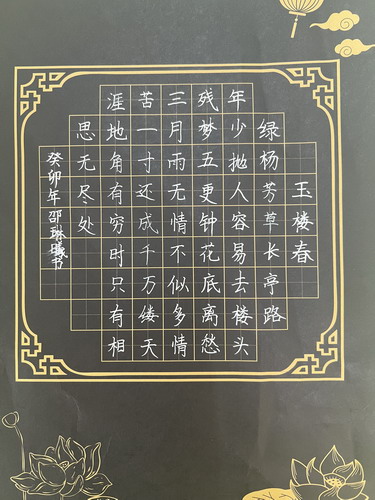 玉楼春
绿杨芳草长亭路
年少抛人容易去楼头
残梦五更钟花底离愁
三月雨无情不似多情
苦一寸还成千万缕天
涯地角有穷时只有相
思无尽处
癸卯年邵琳曦书